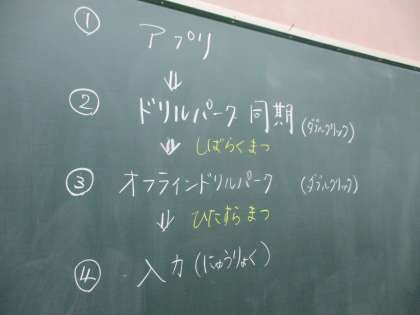 ① アプリ
⇓
② ドリルパーク同期 (ダブルクリック)
⇓ しばらくまつ
③ オフラインドリルパーク (ダブルクリック)
⇓ ひたすらまつ
④ 入力 (にゅうりょく)